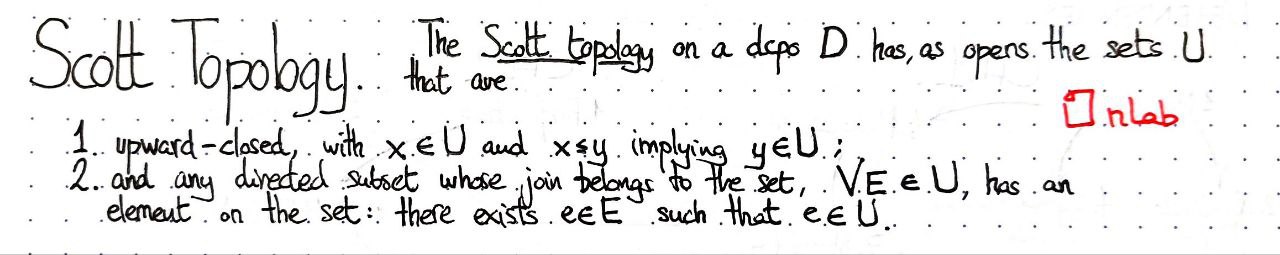 Scott Topology. The Scott topology on a dcpo D has, as opens the sets U
that are
nLab
1. upward-closed, with x ∈ U and x ≤ y implying y ∈ U;
2. and any directed subset whose join belongs to the set, ∨E ∈ U, has an
element on the set: there exists e ∈ E such that e ∈ U.